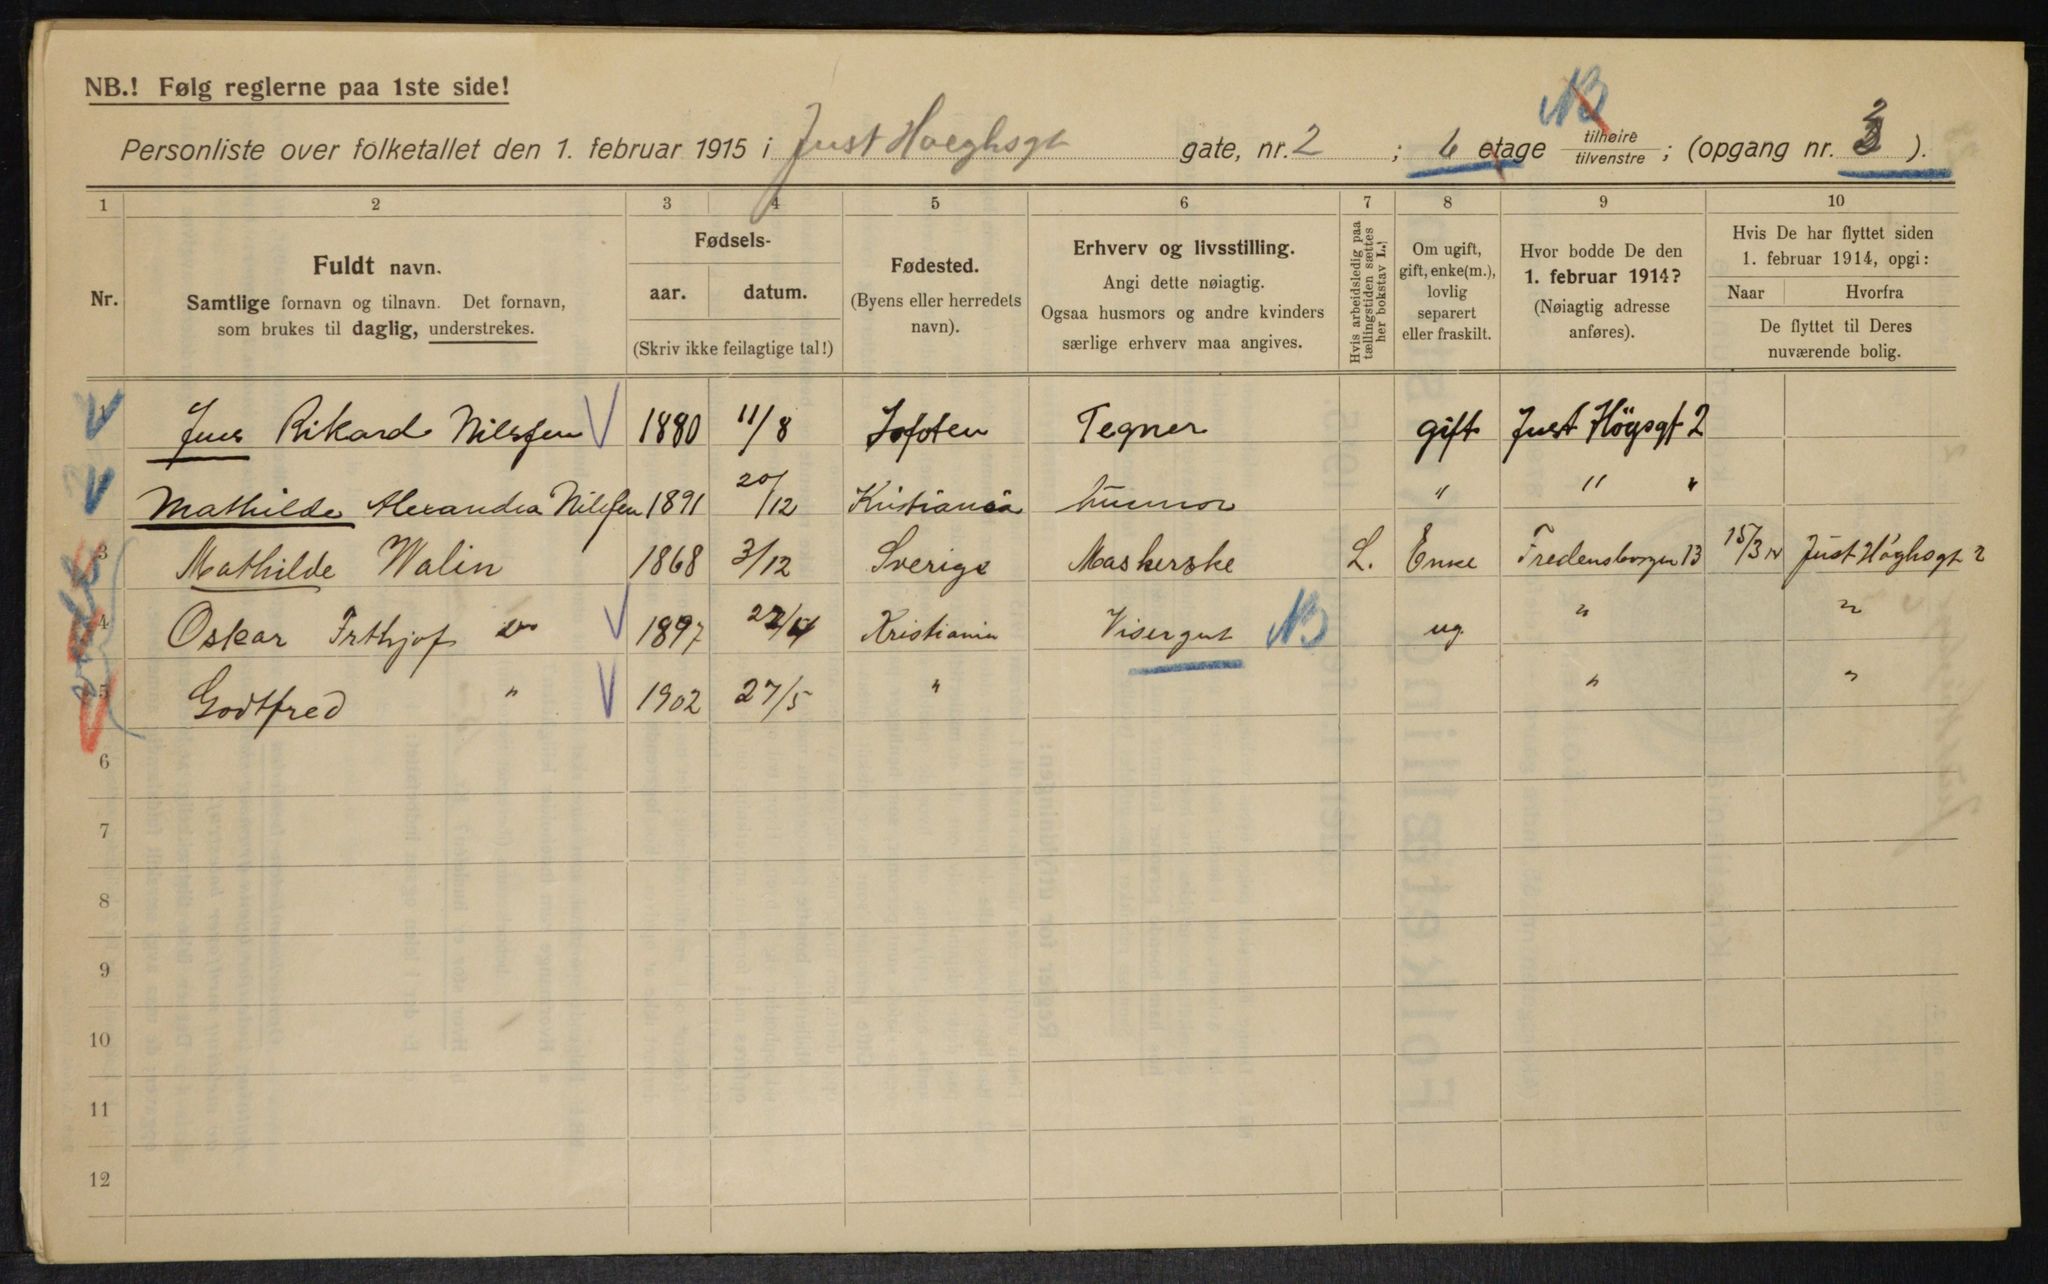 NB.! Følg reglerne paa 1ste side!
NB
Personliste over folketallet den 1. februar 1915 i Just Høeghsgt gate, nr. 2 ; 6 etage tilhøire tilvenstre ; (opgang nr. 2 ).
1 2 3 4 5 6 7 8 9 10
Nr.
Fuldt navn.
Samtlige fornavn og tilnavn. Det fornavn,
som brukes til daglig, understrekes.
Fødsels-
aar. datum.
(Skriv ikke feilagtige tal!)
Fødested.
(Byens eller herredets
navn).
Erhverv og livsstilling.
Angi dette nøiagtig.
Ogsaa husmors og andre kvinders
særlige erhverv maa angives.
Hvis arbeidsledig paa
tællingstiden sættes
her bokstav L.!
Om ugift,
gift, enke(m.),
lovlig
separert
eller fraskilt.
Hvor bodde De den
1. februar 1914?
(Nøiagtig adresse
anføres).
Hvis De har flyttet siden
1. februar 1914, opgi:
Naar Hvorfra
De flyttet til Deres
nuværende bolig.
1 Jens Rikard Nilssen 1880 11/8 Lofoten Tegner gift Just Högsgt 2
Mathilde Alexandra Nilssen 1891 20/12 Kristiania husmor " " "
3 Mathilde Walin 1868 3/12 Sverige Maskerske L. Enke Fredensborgen 13 15/3 14 Just Høghsgt 2
4 Oskar Frthjof 1897 Kristiania Visergut NB ug. " "
5 Godtfred " 1902 27/5 " " "
6
7
8
9
10
11
12